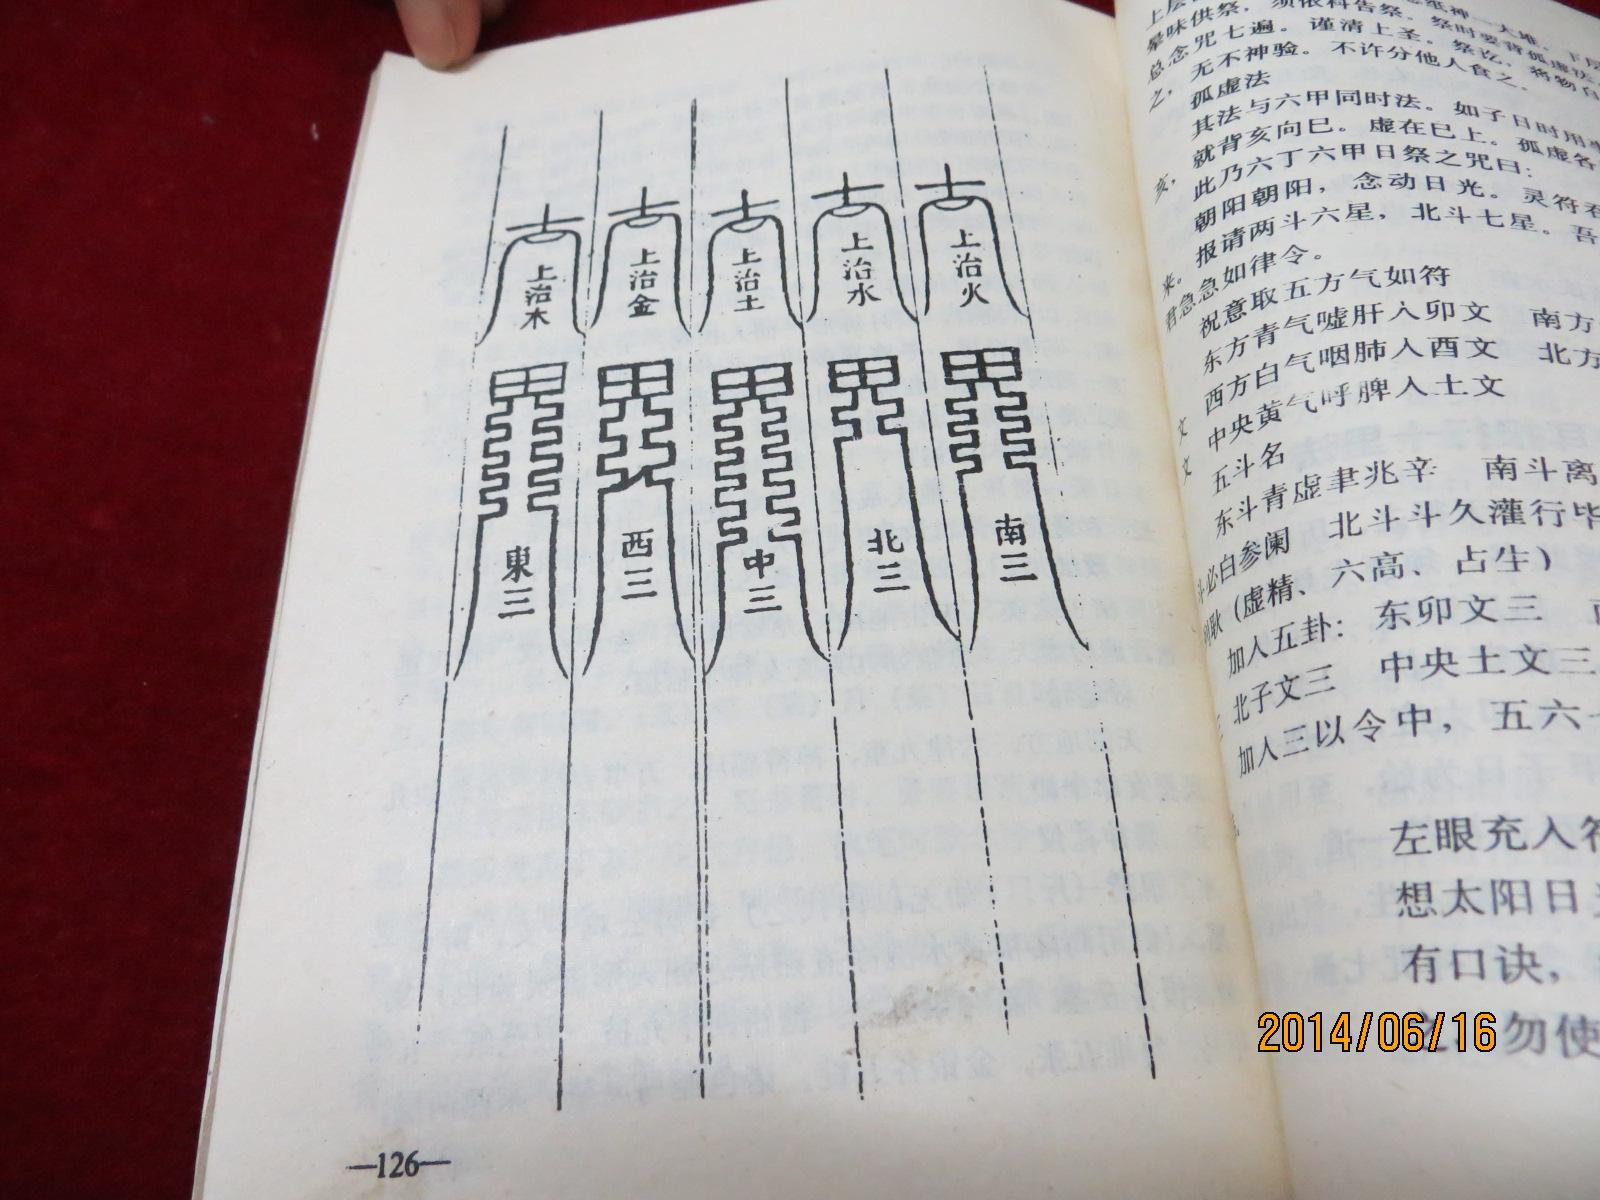 上治木
上治金
上治土
上治水
上治火
東三
西三
中三
北三
南三
—126—
晕味供祭，须依科告祭。祭时要背孤虚法
总念咒七遍。谨清上圣。祭讫，将物
之，无不神验。不许分他人食之。
孤虚法
其法与六甲同时法。如子日时用
亥，就背亥向巳。虚在巳上。孤虚各
此乃六丁六甲日祭之咒曰：
朝阳朝阳，念动日光。灵符
来。报请两斗六星，北斗七星。吾
君急急如律令。
祝意取五方气如符
东方青气嘘肝入卯文 南方
文 西方白气呬肺入酉文 北方
文 中央黄气呼脾入土文
五斗名
东斗青虚聿兆辛 南斗离
必白参阑 北斗斗久灌行毕
耿（虚精、六高、占生）
加入五卦：东卯文三
三 北子文三 中央土文三
加入三以令中，五六
左眼充入符
想太阳日
有口诀，
之 勿使
2014/06/16